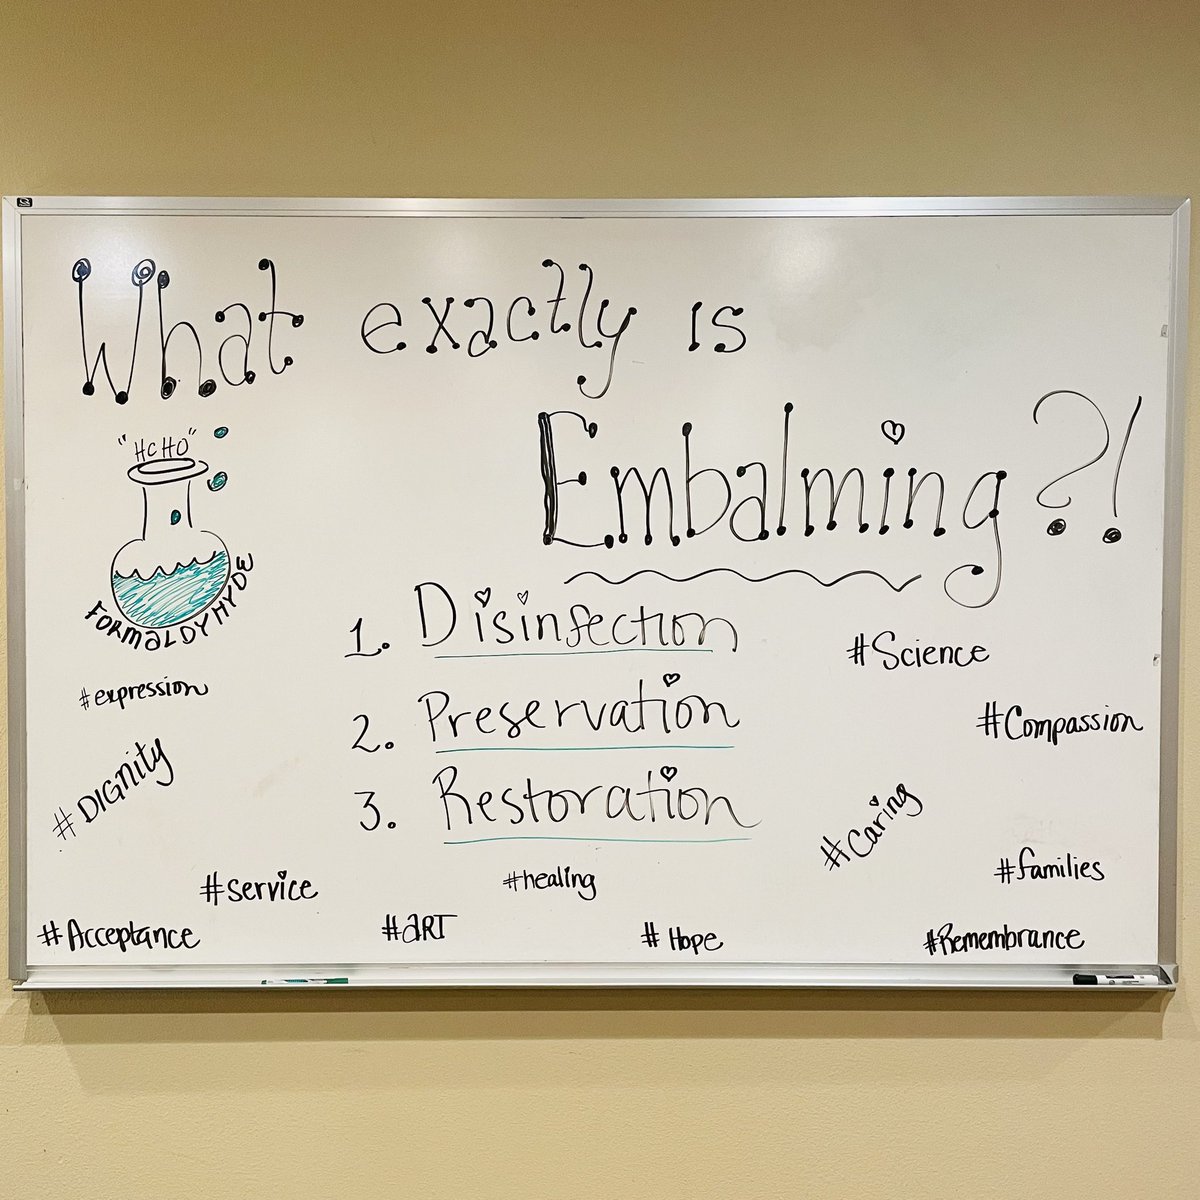 What exactly is
Embalming?!
"HCHO"
FORMALDYHYDE
1. Disinfection
2. Preservation
3. Restoration
#Science
#expression
#Compassion
#DIGNITY
#Caring
#families
#service
#healing
#Acceptance
#ART
#Hope
#Remembrance